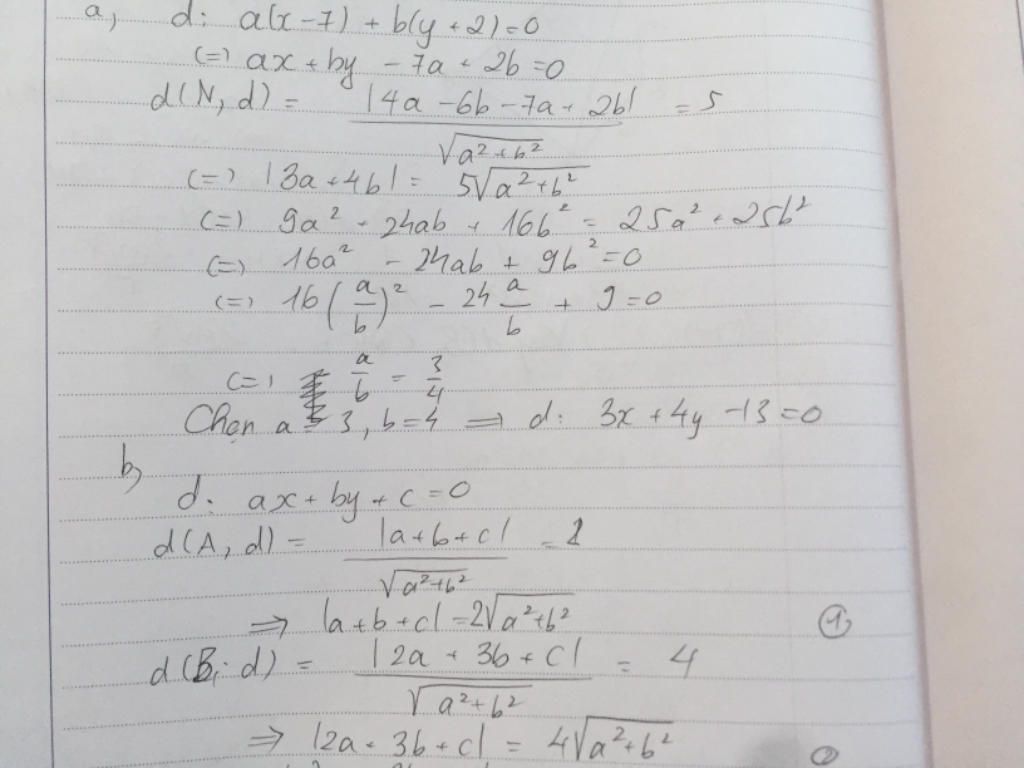 a, d: a(x-7) + b(y+2)=0
(=) ax + by - 7a + 2b = 0
d(N, d) = |4a - 6b - 7a + 2b| / √(a²+b²) = 5
(=) |3a + 4b| = 5√(a²+b²)
(=) 9a² + 24ab + 16b² = 25a² + 25b²
(=) 16a² - 24ab + 9b² = 0
(=) 16(a/b)² - 24 a/b + 9 = 0
(=) a/b = 3/4
Chọn a = 3, b = 4 => d: 3x + 4y - 13 = 0
b,
d: ax + by + c = 0
d(A, d) = |a+b+c| / √(a²+b²) = 2
=> |a + b + c| = 2√(a²+b²) ①
d(B; d) = |2a + 3b + c| / √(a²+b²) = 4
=> |2a + 3b + c| = 4√(a²+b²) ②